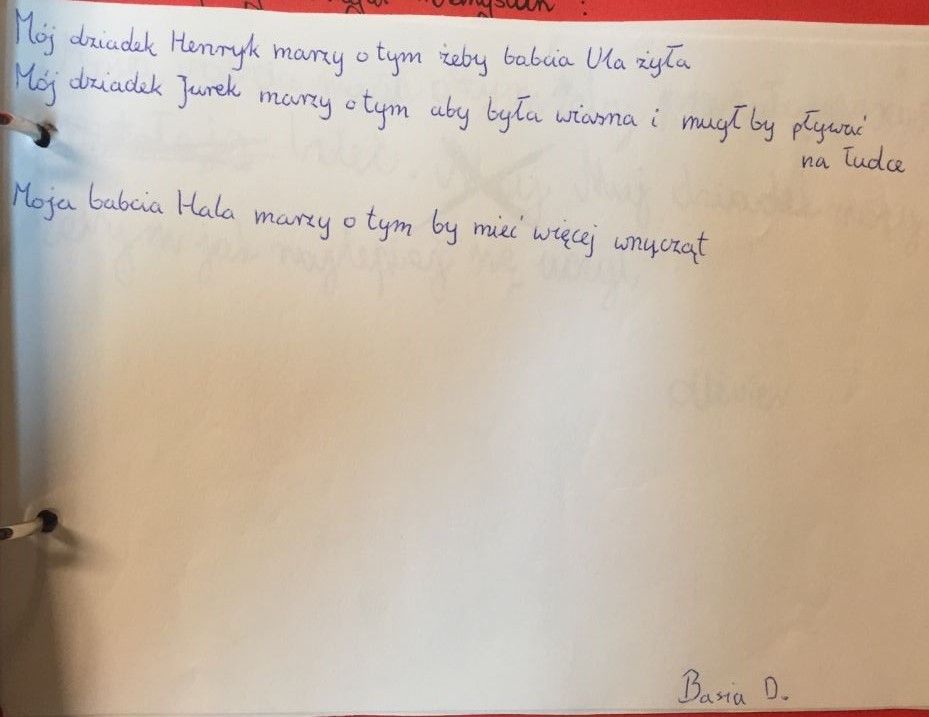 Mój dziadek Henryk marzy o tym żeby babcia Ula żyła
Mój dziadek Jurek marzy o tym aby była wiasna i mugł by pływać
na łudce
Moja babcia Hala marzy o tym by mieć więcej wnycząt
Basia D.